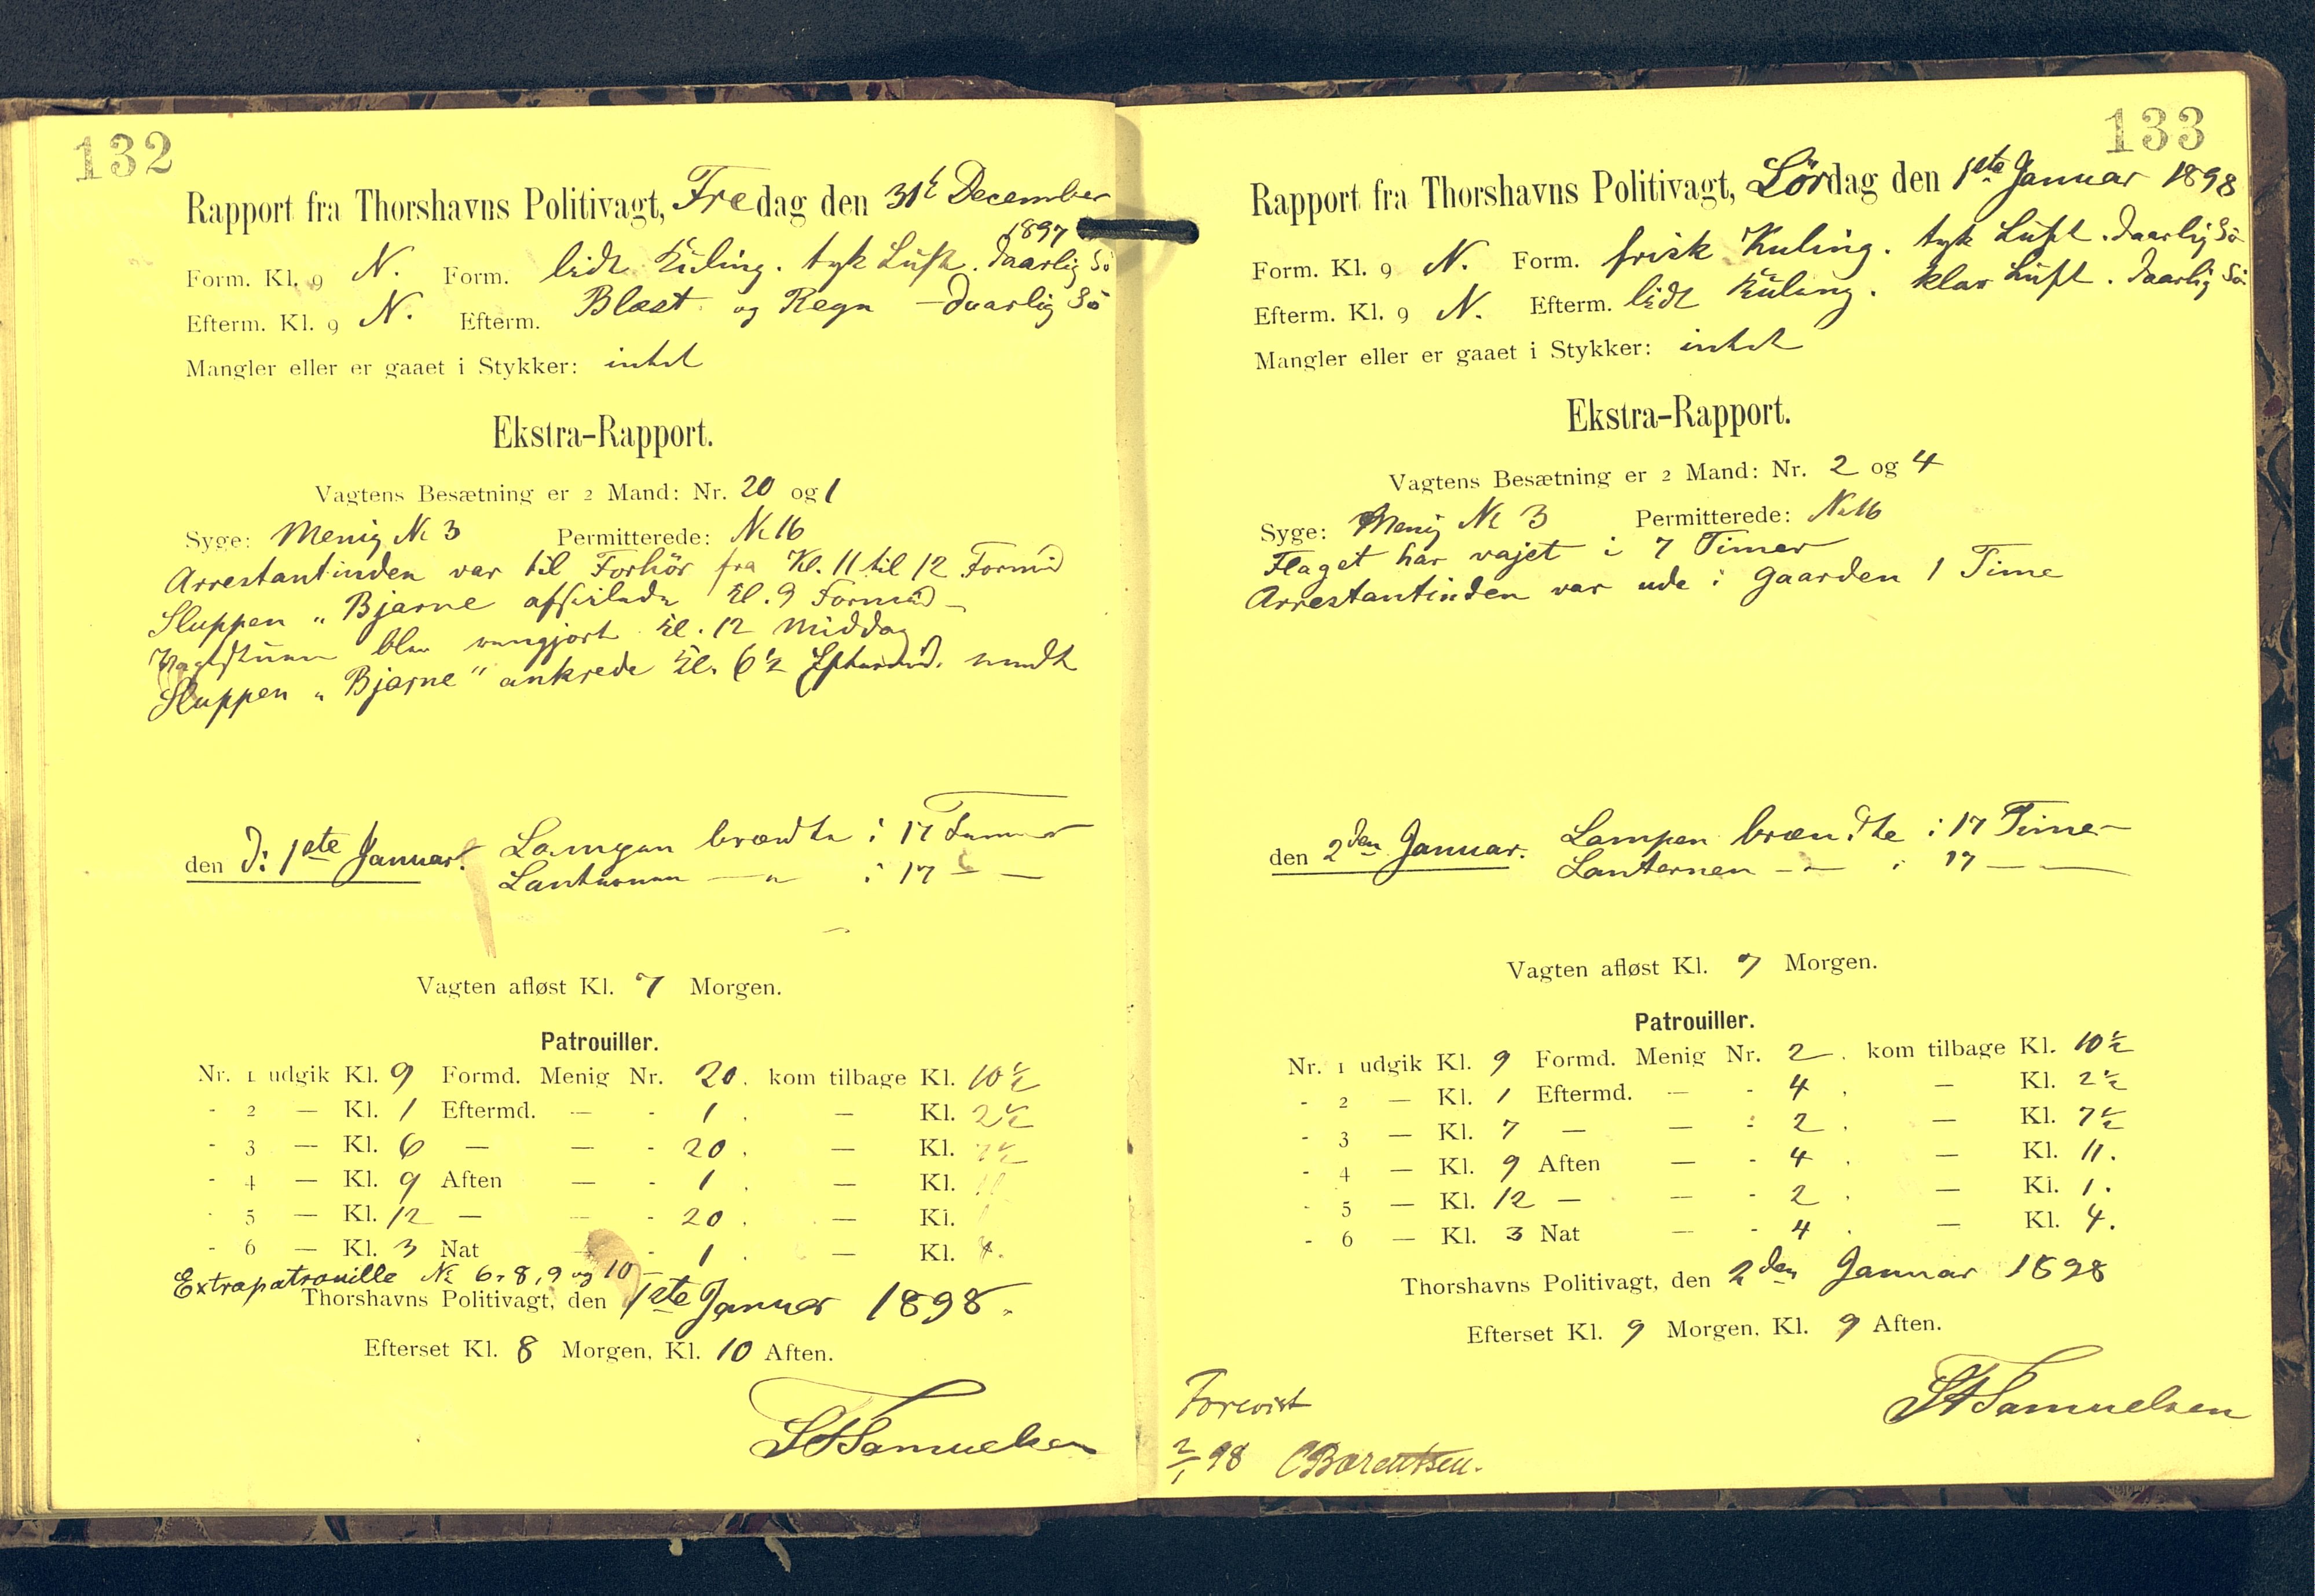 132
Rapport fra Thorshavns Politivagt, Fredag den 31t December
1897
Form. Kl. 9 N. Form. lidt Kuling. tyk Luft. daarlig Sö
Efterm. Kl. 9 N. Efterm. Blæst og Regn - daarlig Sö
Mangler eller er gaaet i Stykker: intet
Ekstra-Rapport.
Vagtens Besætning er 2 Mand: Nr. 20 og 1
Syge: Menig № 3 Permitterede: № 16
Arrestantinden var til Forhör fra Kl. 11 til 12 Formd
Sluppen „Bjarne afseilede Kl. 9 Formd -
Vagtstuen blev rengjort Kl. 12 Middag
Sluppen „Bjarne" ankrede Kl. 6½ Eftermd.
den D: 1ste Januar. Lampen brændte i 17 Timer
Lanternen — „ i 17 — —
Vagten afløst Kl. 7 Morgen.
Patrouiller.
Nr. 1 udgik Kl. 9 Formd. Menig Nr. 20. kom tilbage Kl. 10½
- 2 — Kl. 1 Eftermd. — - 1. — Kl. 2½
- 3 — Kl. 6 — — - 20. — Kl. 7½
- 4 — Kl. 9 Aften — - 1. — Kl. 11
- 5 — Kl. 12 — — - 20. — Kl.
- 6 — Kl. 3 Nat — - 1. — Kl. 4.
Extrapatrouille № 6, 8, 9 og 10 —
Thorshavns Politivagt, den 1ste Januar 1898.
Efterset Kl. 8 Morgen, Kl. 10 Aften.
Samuelsen
133
Rapport fra Thorshavns Politivagt, Lördag den 1ste Januar 1898
Form. Kl. 9 N. Form. frisk Kuling. tyk Luft. daarlig Sö
Efterm. Kl. 9 N. Efterm. lidt Kuling. klar Luft. daarlig Sö
Mangler eller er gaaet i Stykker: intet
Ekstra-Rapport.
Vagtens Besætning er 2 Mand: Nr. 2 og 4
Syge: Menig № 3 Permitterede: № 16
Flaget har vajet i 7 Timer
Arrestantinden var ude i Gaarden 1 Time
den 2den Januar. Lampen brændte i 17 Timer
Lanternen - „ — i 17 — —
Vagten afløst Kl. 7 Morgen.
Patrouiller.
Nr. 1 udgik Kl. 9 Formd. Menig Nr. 2. kom tilbage Kl. 10½
- 2 — Kl. 1 Eftermd. — - 4. — Kl. 2½
- 3 — Kl. 7 — — - 2. — Kl. 7½
- 4 — Kl. 9 Aften — - 4. — Kl. 11.
- 5 — Kl. 12 — — - 2. — Kl. 1.
- 6 — Kl. 3 Nat — - 4. — Kl. 4.
Thorshavns Politivagt, den 2den Januar 1898
Efterset Kl. 9 Morgen, Kl. 9 Aften.
Samuelsen
Forevist
2/1 98 CBærentsen.